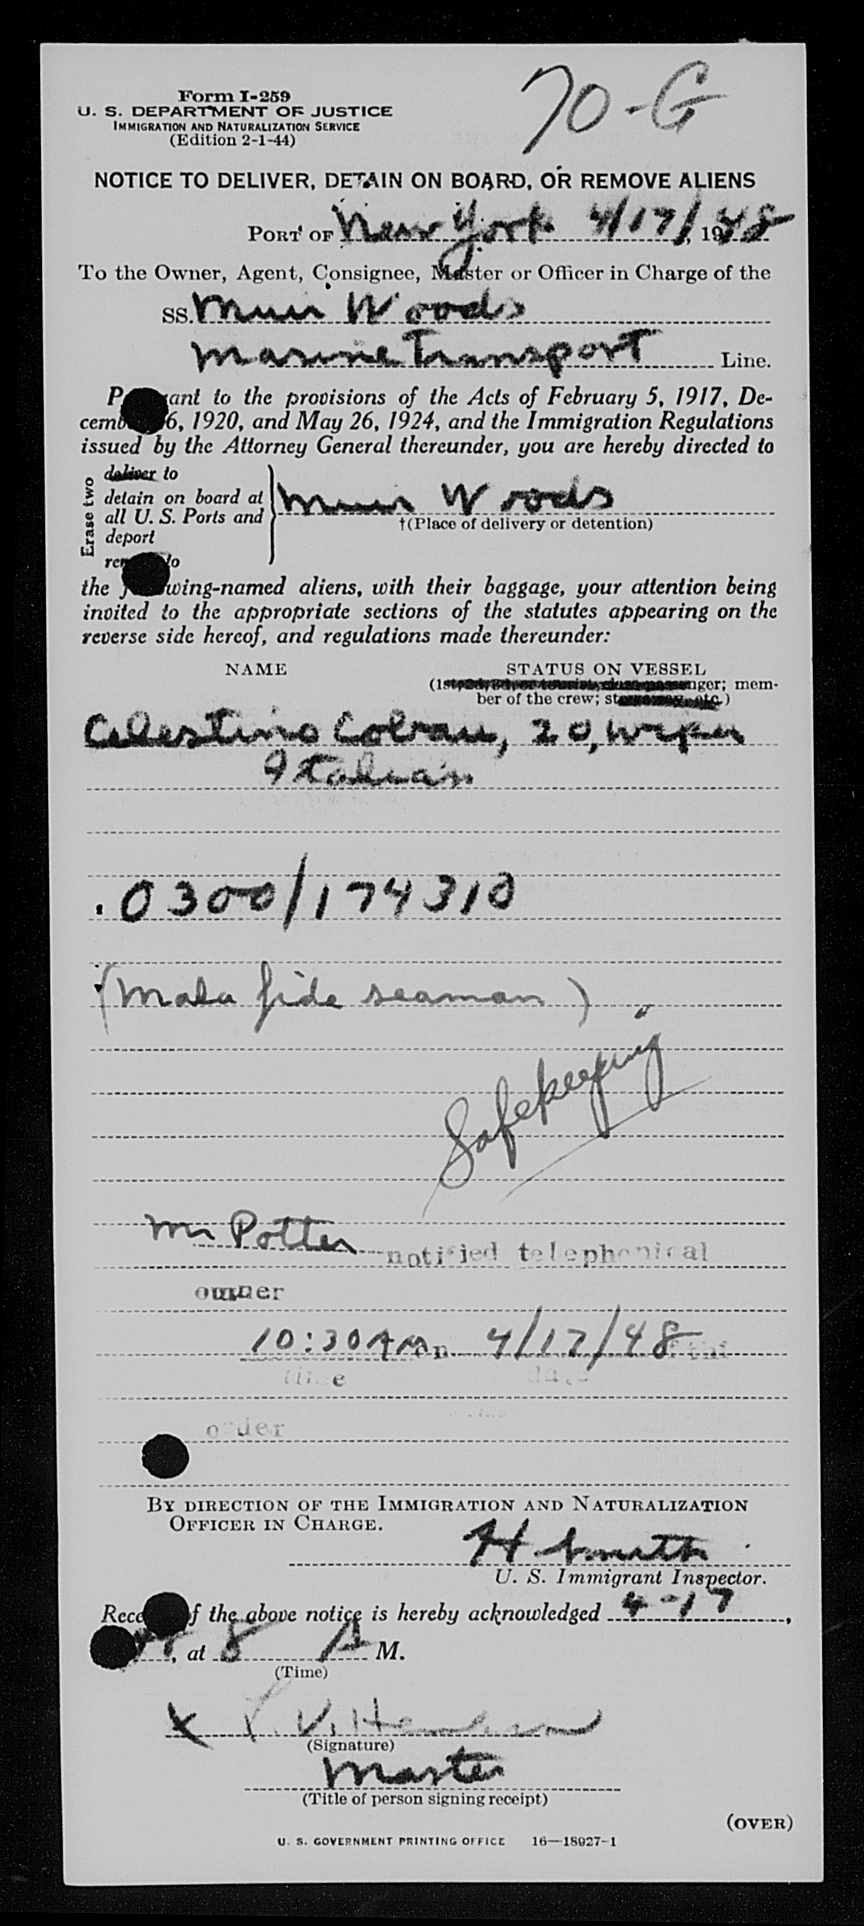 70-G
Form I-259
U. S. DEPARTMENT OF JUSTICE
IMMIGRATION AND NATURALIZATION SERVICE
(Edition 2-1-44)
NOTICE TO DELIVER, DETAIN ON BOARD, OR REMOVE ALIENS
PORT OF New York 4/17/, 1948
To the Owner, Agent, Consignee, Master or Officer in Charge of the
SS. Muir Woods
Marine Transport Line.
ant to the provisions of the Acts of February 5, 1917, De-
cemb 6, 1920, and May 26, 1924, and the Immigration Regulations
issued by the Attorney General thereunder, you are hereby directed to
Erase two
deliver to
detain on board at
all U. S. Ports and
deport
to
Muir Woods
†(Place of delivery or detention)
the wing-named aliens, with their baggage, your attention being
invited to the appropriate sections of the statutes appearing on the
reverse side hereof, and regulations made thereunder:
NAME STATUS ON VESSEL
(1st nger; mem-
ber of the crew; st etc.)
Celestino , 20, wiper
Italian
0300/174310
(Mala fide seaman)
Safekeeping
Mr Potter notified telephonical
owner
10:30 AM n 4/17/48
time date
order
BY DIRECTION OF THE IMMIGRATION AND NATURALIZATION
OFFICER IN CHARGE.
H. Smith
U. S. Immigrant Inspector.
Rece f the above notice is hereby acknowledged 4-17,
, at 8 A M.
(Time)
X V.
(Signature)
Master
(Title of person signing receipt)
(OVER)
U. S. GOVERNMENT PRINTING OFFICE 16—18927-1